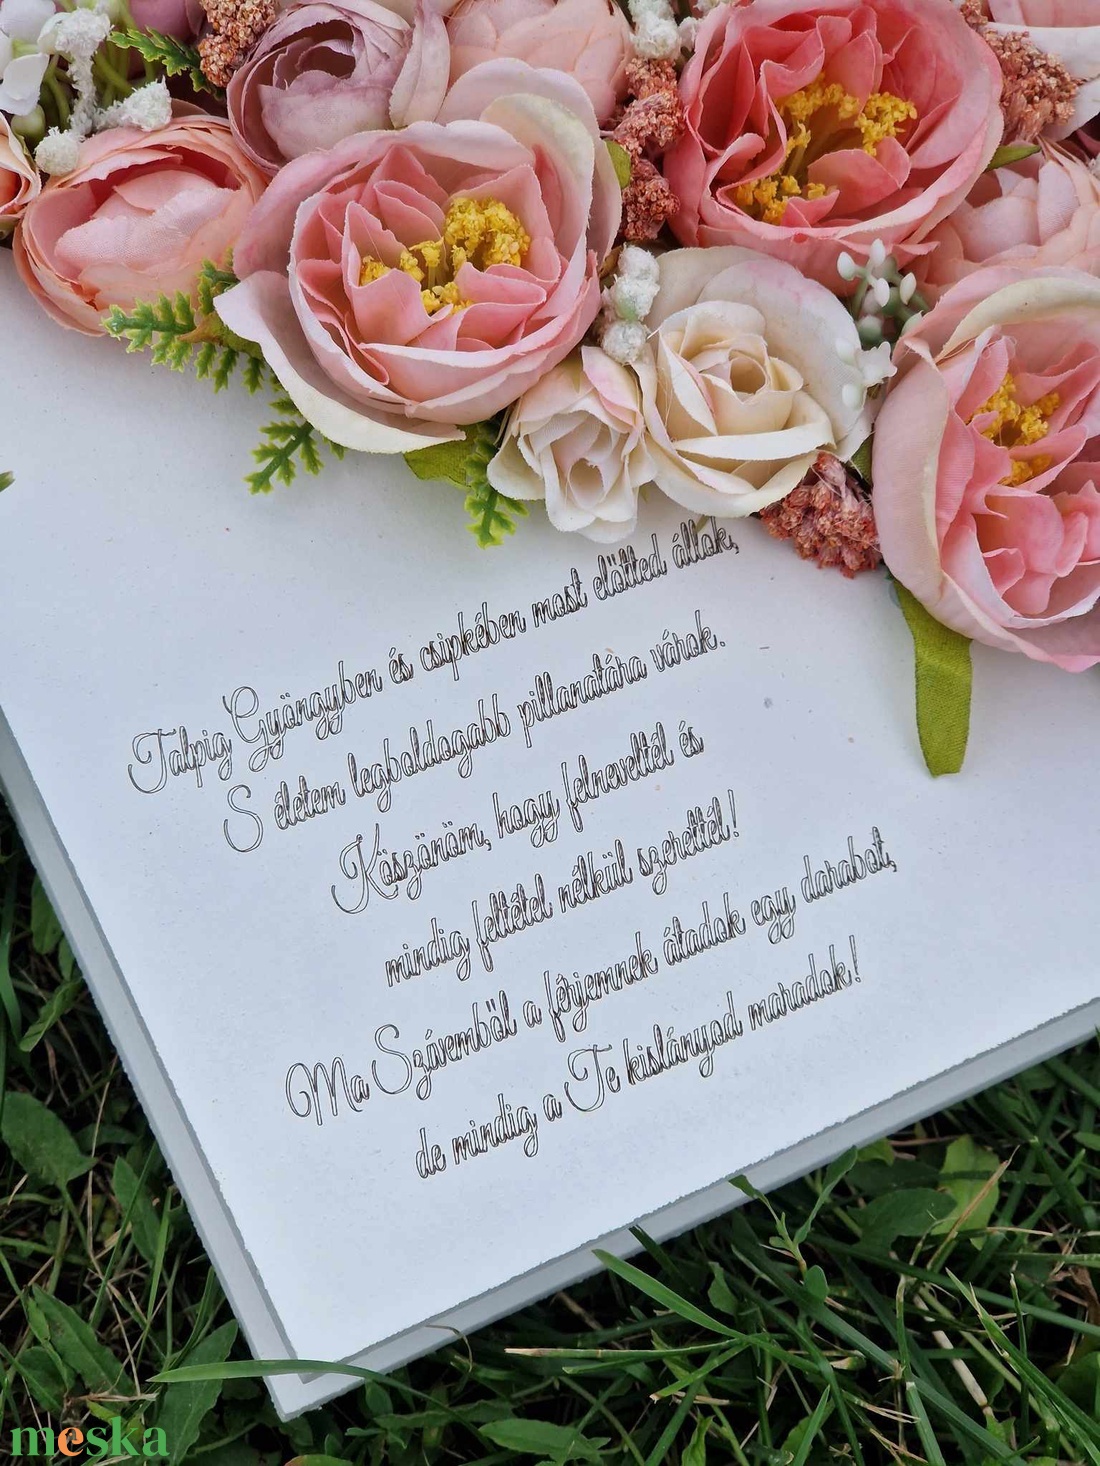 Talpig Gyöngyben és csipkében most előtted állok,
S életem legboldogabb pillanatára várok.
Köszönöm, hogy felneveltél és
mindig feltétel nélkül szerettél!
Ma Szívemből a férjemnek átadok egy darabot,
de mindig a Te kislányod maradok!
meska